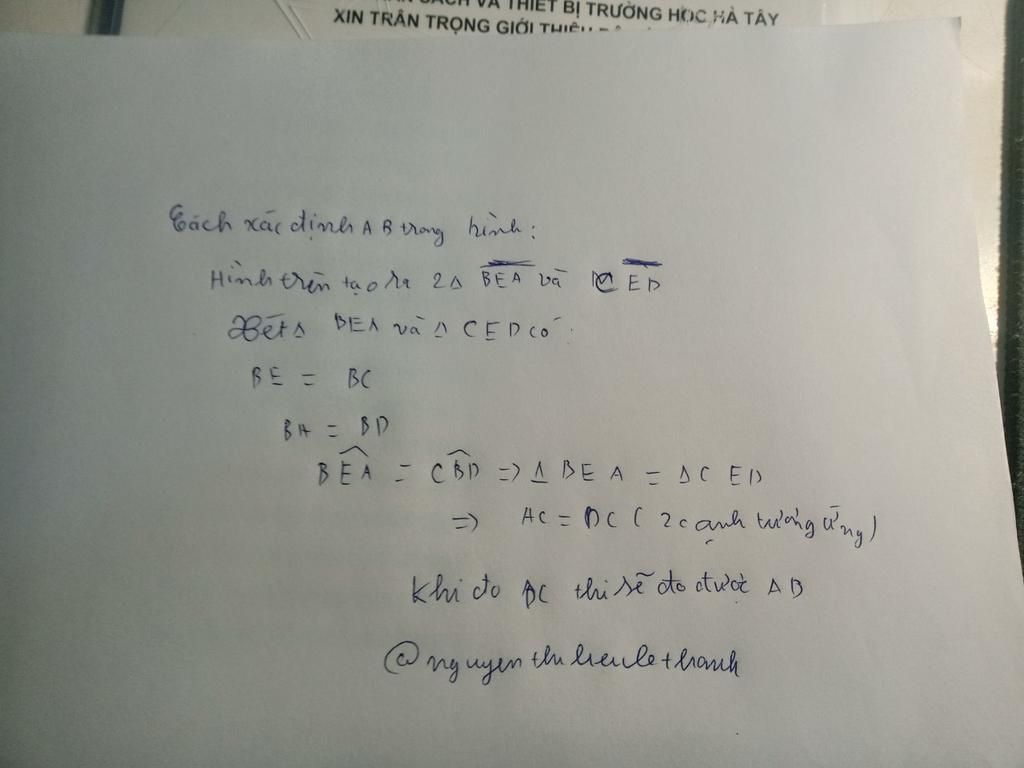 SÁCH VÀ THIẾT BỊ TRƯỜNG HỌC HÀ TÂY
XIN TRÂN TRỌNG GIỚI THIỆU
Cách xác định AB trong hình:
Hình trên tạo ra 2Δ BEA và CED
Xét Δ BEA và Δ CED có:
BE = BC
BA = BD
BEA = CBD => Δ BEA = Δ CED
=> AC = DC (2 cạnh tương ứng)
Khi đo DC thì sẽ đo được AB
@nguyenthihieulethanh